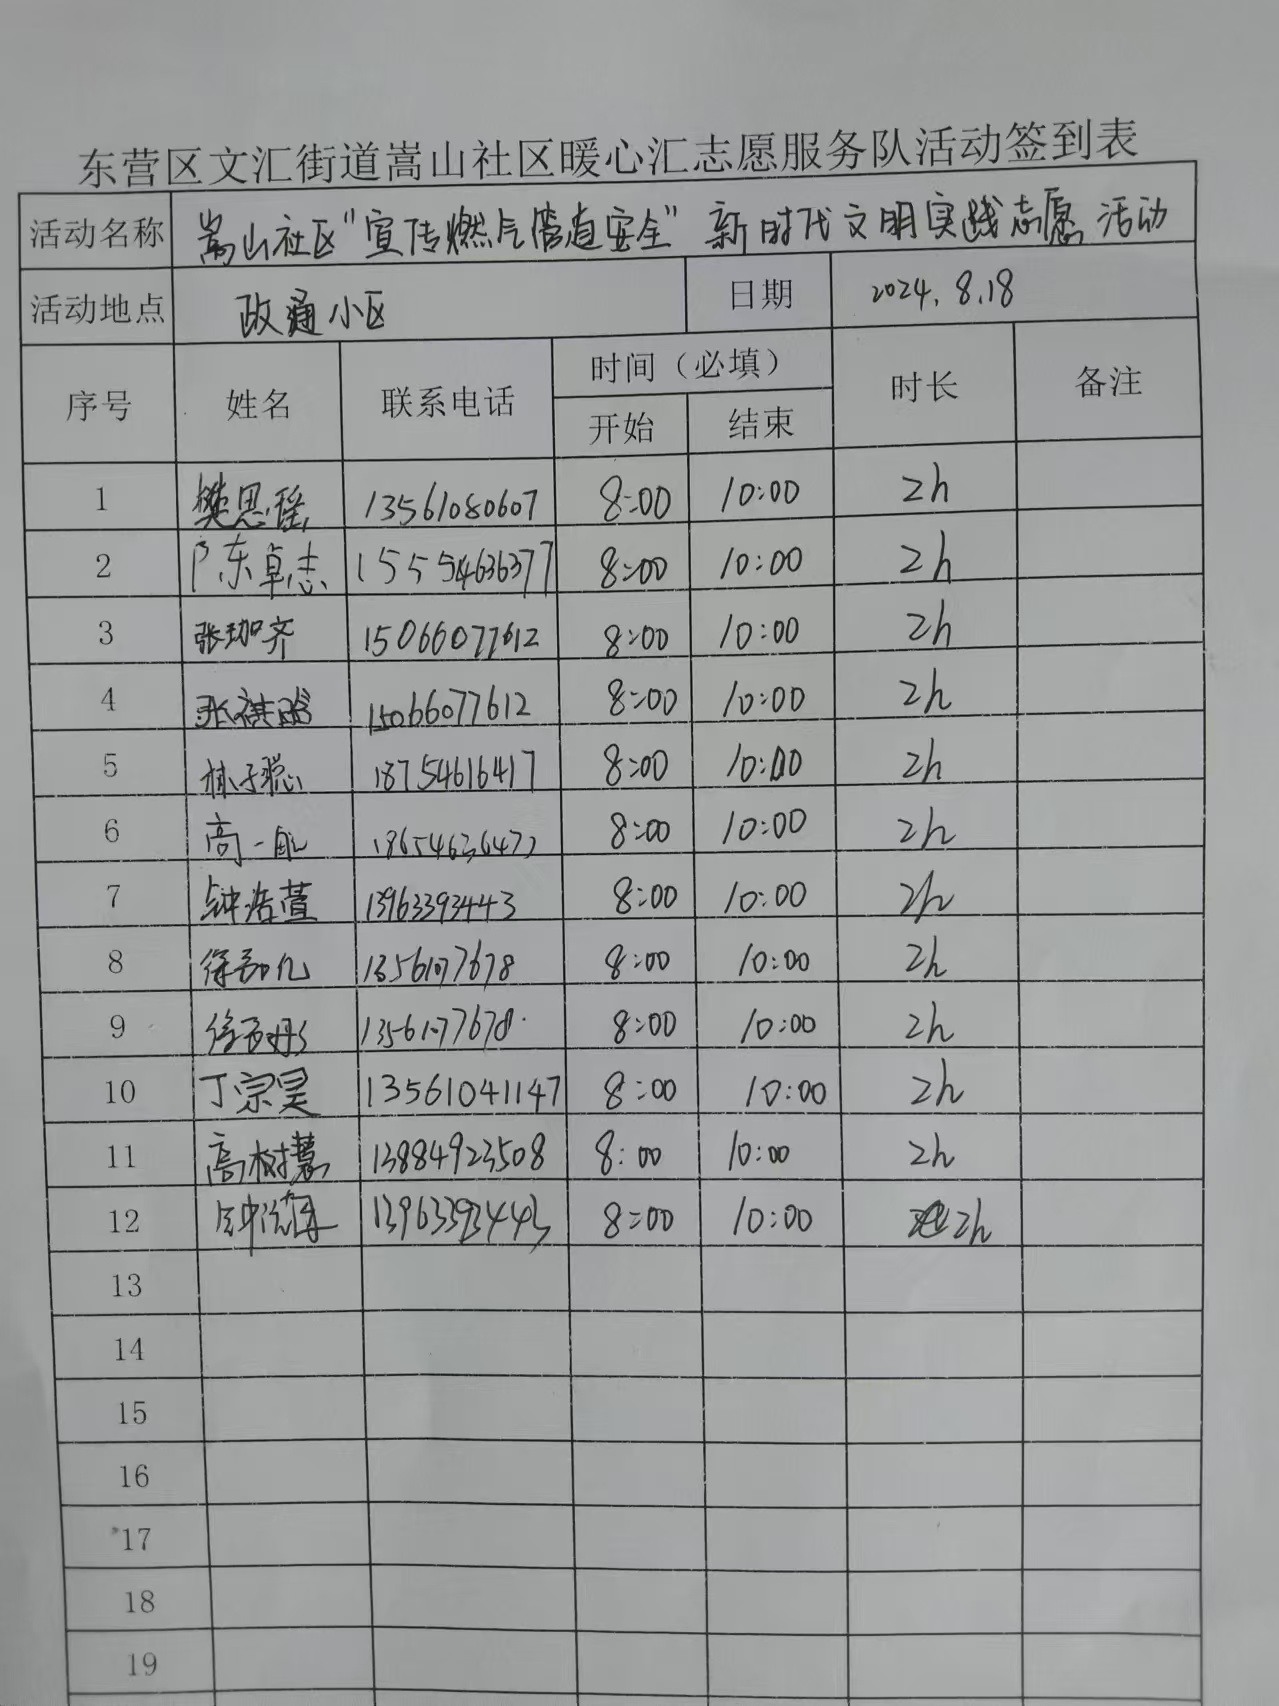 东营区文汇街道嵩山社区暖心汇志愿服务队活动签到表
活动名称 嵩山社区"宣传燃气管道安全"新时代文明实践志愿活动
活动地点 政通小区 日期 2024.8.18
序号 姓名 联系电话 时间（必填） 时长 备注
开始 结束
1 樊思瑶 13561080607 8:00 10:00 2h
2 陈卓志 15554636377 8:00 10:00 2h
3 张珈齐 15066077612 8:00 10:00 2h
4 张祺 15066077612 8:00 10:00 2h
5 林子聪 18754616417 8:00 10:00 2h
6 高一航 18654636477 8:00 10:00 2h
7 钟浩萱 13963393443 8:00 10:00 2h
8 徐 8:00 10:00 2h
9 徐 8:00 10:00 2h
10 丁宗昊 13561041147 8:00 10:00 2h
11 高树慧 13884923508 8:00 10:00 2h
12 钟 13963393443 8:00 10:00 2h
13
14
15
16
17
18
19